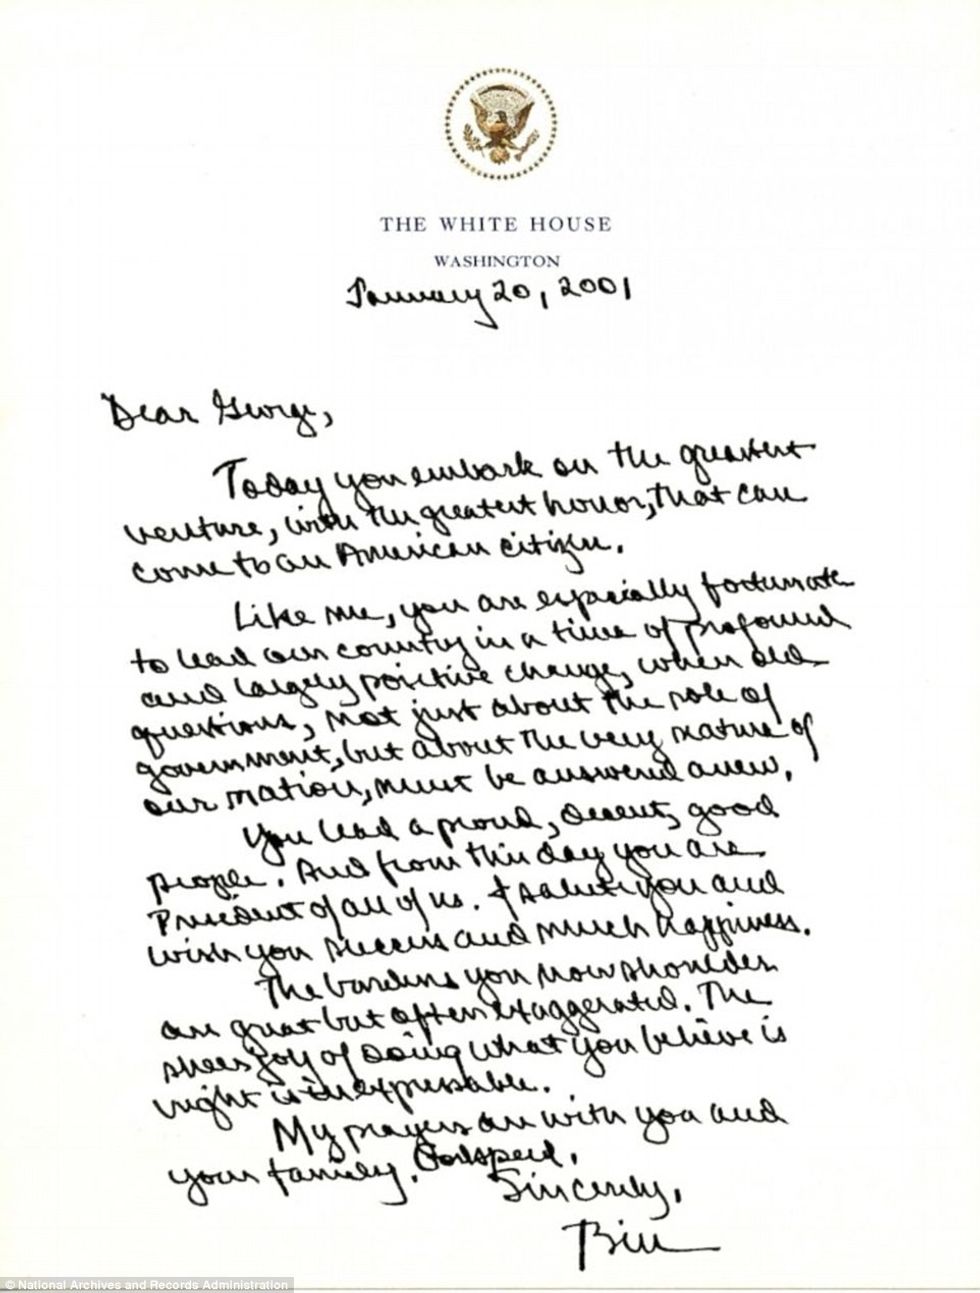 THE WHITE HOUSE
WASHINGTON
January 20, 2001
Dear George,
Today you embark on the greatest
venture, with the greatest honor, that can
come to an American citizen.
Like me, you are especially fortunate
to lead our country in a time of profound
and largely positive change, when old
questions, not just about the role of
government, but about the very nature of
our nation, must be answered anew.
You lead a proud, decent, good
people. And from this day you are
President of all of us. I salute you and
wish you success and much happiness.
The burdens you now shoulder
are great but often exaggerated. The
sheer joy of doing what you believe is
right is inexpressible.
My prayers are with you and
your family. Godspeed.
Sincerely,
Bill
© National Archives and Records Administration